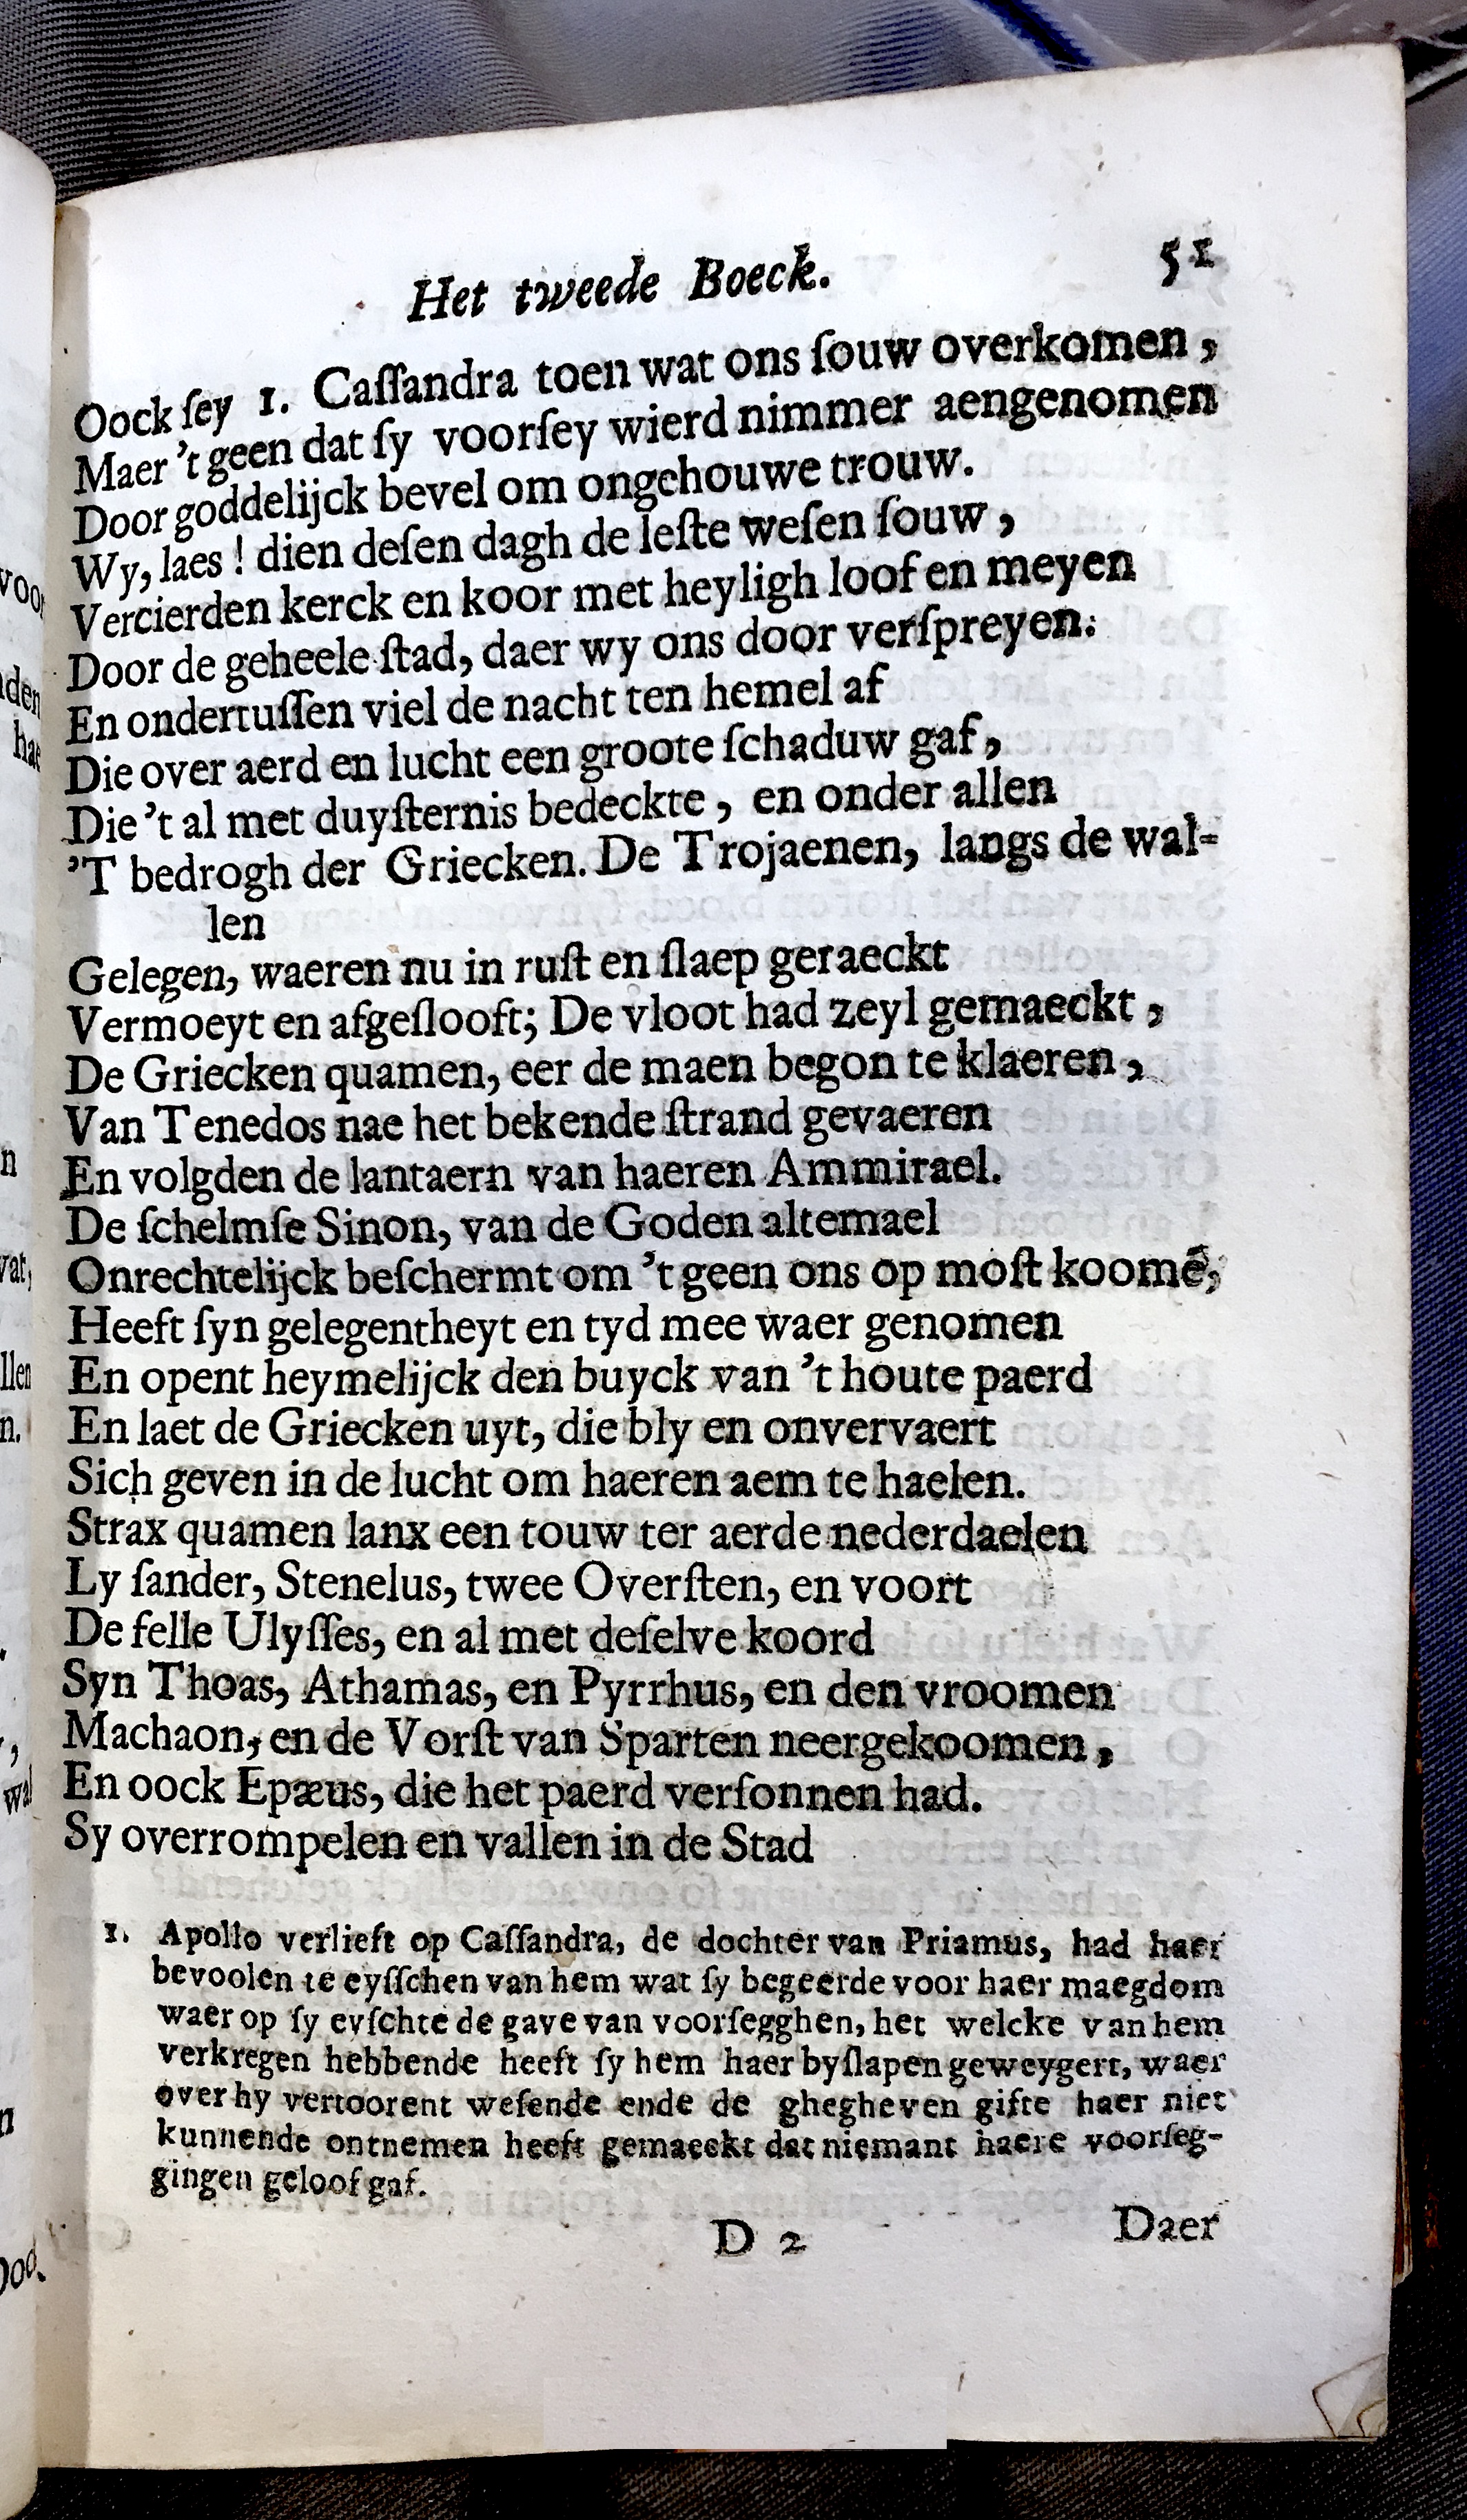 Het tweede Boeck. 51
Oock ſey 1. Caſſandra toen wat ons ſouw overkomen,
Maer 't geen dat ſy voorſey wierd nimmer aengenomen
Door goddelijck bevel om ongehouwe trouw.
Wy, laes! dien deſen dagh de leſte weſen ſouw,
Vercierden kerck en koor met heyligh loof en meyen
Door de geheele ſtad, daer wy ons door verſpreyen.
En ondertuſſen viel de nacht ten hemel af
Die over aerd en lucht een groote ſchaduw gaf,
Die 't al met duyſternis bedeckte, en onder allen
'T bedrogh der Griecken. De Trojaenen, langs de wal-
len
Gelegen, waeren nu in ruſt en ſlaep geraeckt
Vermoeyt en afgeſlooft; De vloot had zeyl gemaeckt,
De Griecken quamen, eer de maen begon te klaeren,
Van Tenedos nae het bekende ſtrand gevaeren
En volgden de lantaern van haeren Ammirael.
De ſchelmſe Sinon, van de Goden altemael
Onrechtelijck beſchermt om 't geen ons op moſt koomē,
Heeft ſyn gelegentheyt en tyd mee waer genomen
En opent heymelijck den buyck van 't houte paerd
En laet de Griecken uyt, die bly en onvervaert
Sich geven in de lucht om haeren aem te haelen.
Strax quamen lanx een touw ter aerde nederdaelen
Ly ſander, Stenelus, twee Overſten, en voort
De felle Ulyſſes, en al met deſelve koord
Syn Thoas, Athamas, en Pyrrhus, en den vroomen
Machaon, en de Vorſt van Sparten neergekoomen,
En oock Epæus, die het paerd verſonnen had.
Sy overrompelen en vallen in de Stad
1. Apollo verlieft op Caſſandra, de dochter van Priamus, had haer
bevoolen te eyſſchen van hem wat ſy begeerde voor haer maegdom
waer op ſy eyſchte de gave van voorſegghen, het welcke van hem
verkregen hebbende heeft ſy hem haer byſlapen geweygert, waer
over hy vertoorent weſende ende de ghegheven gifte haer niet
kunnende ontnemen heeft gemaeckt dat niemant haere voorſeg-
gingen geloof gaf.
D 2 Daer